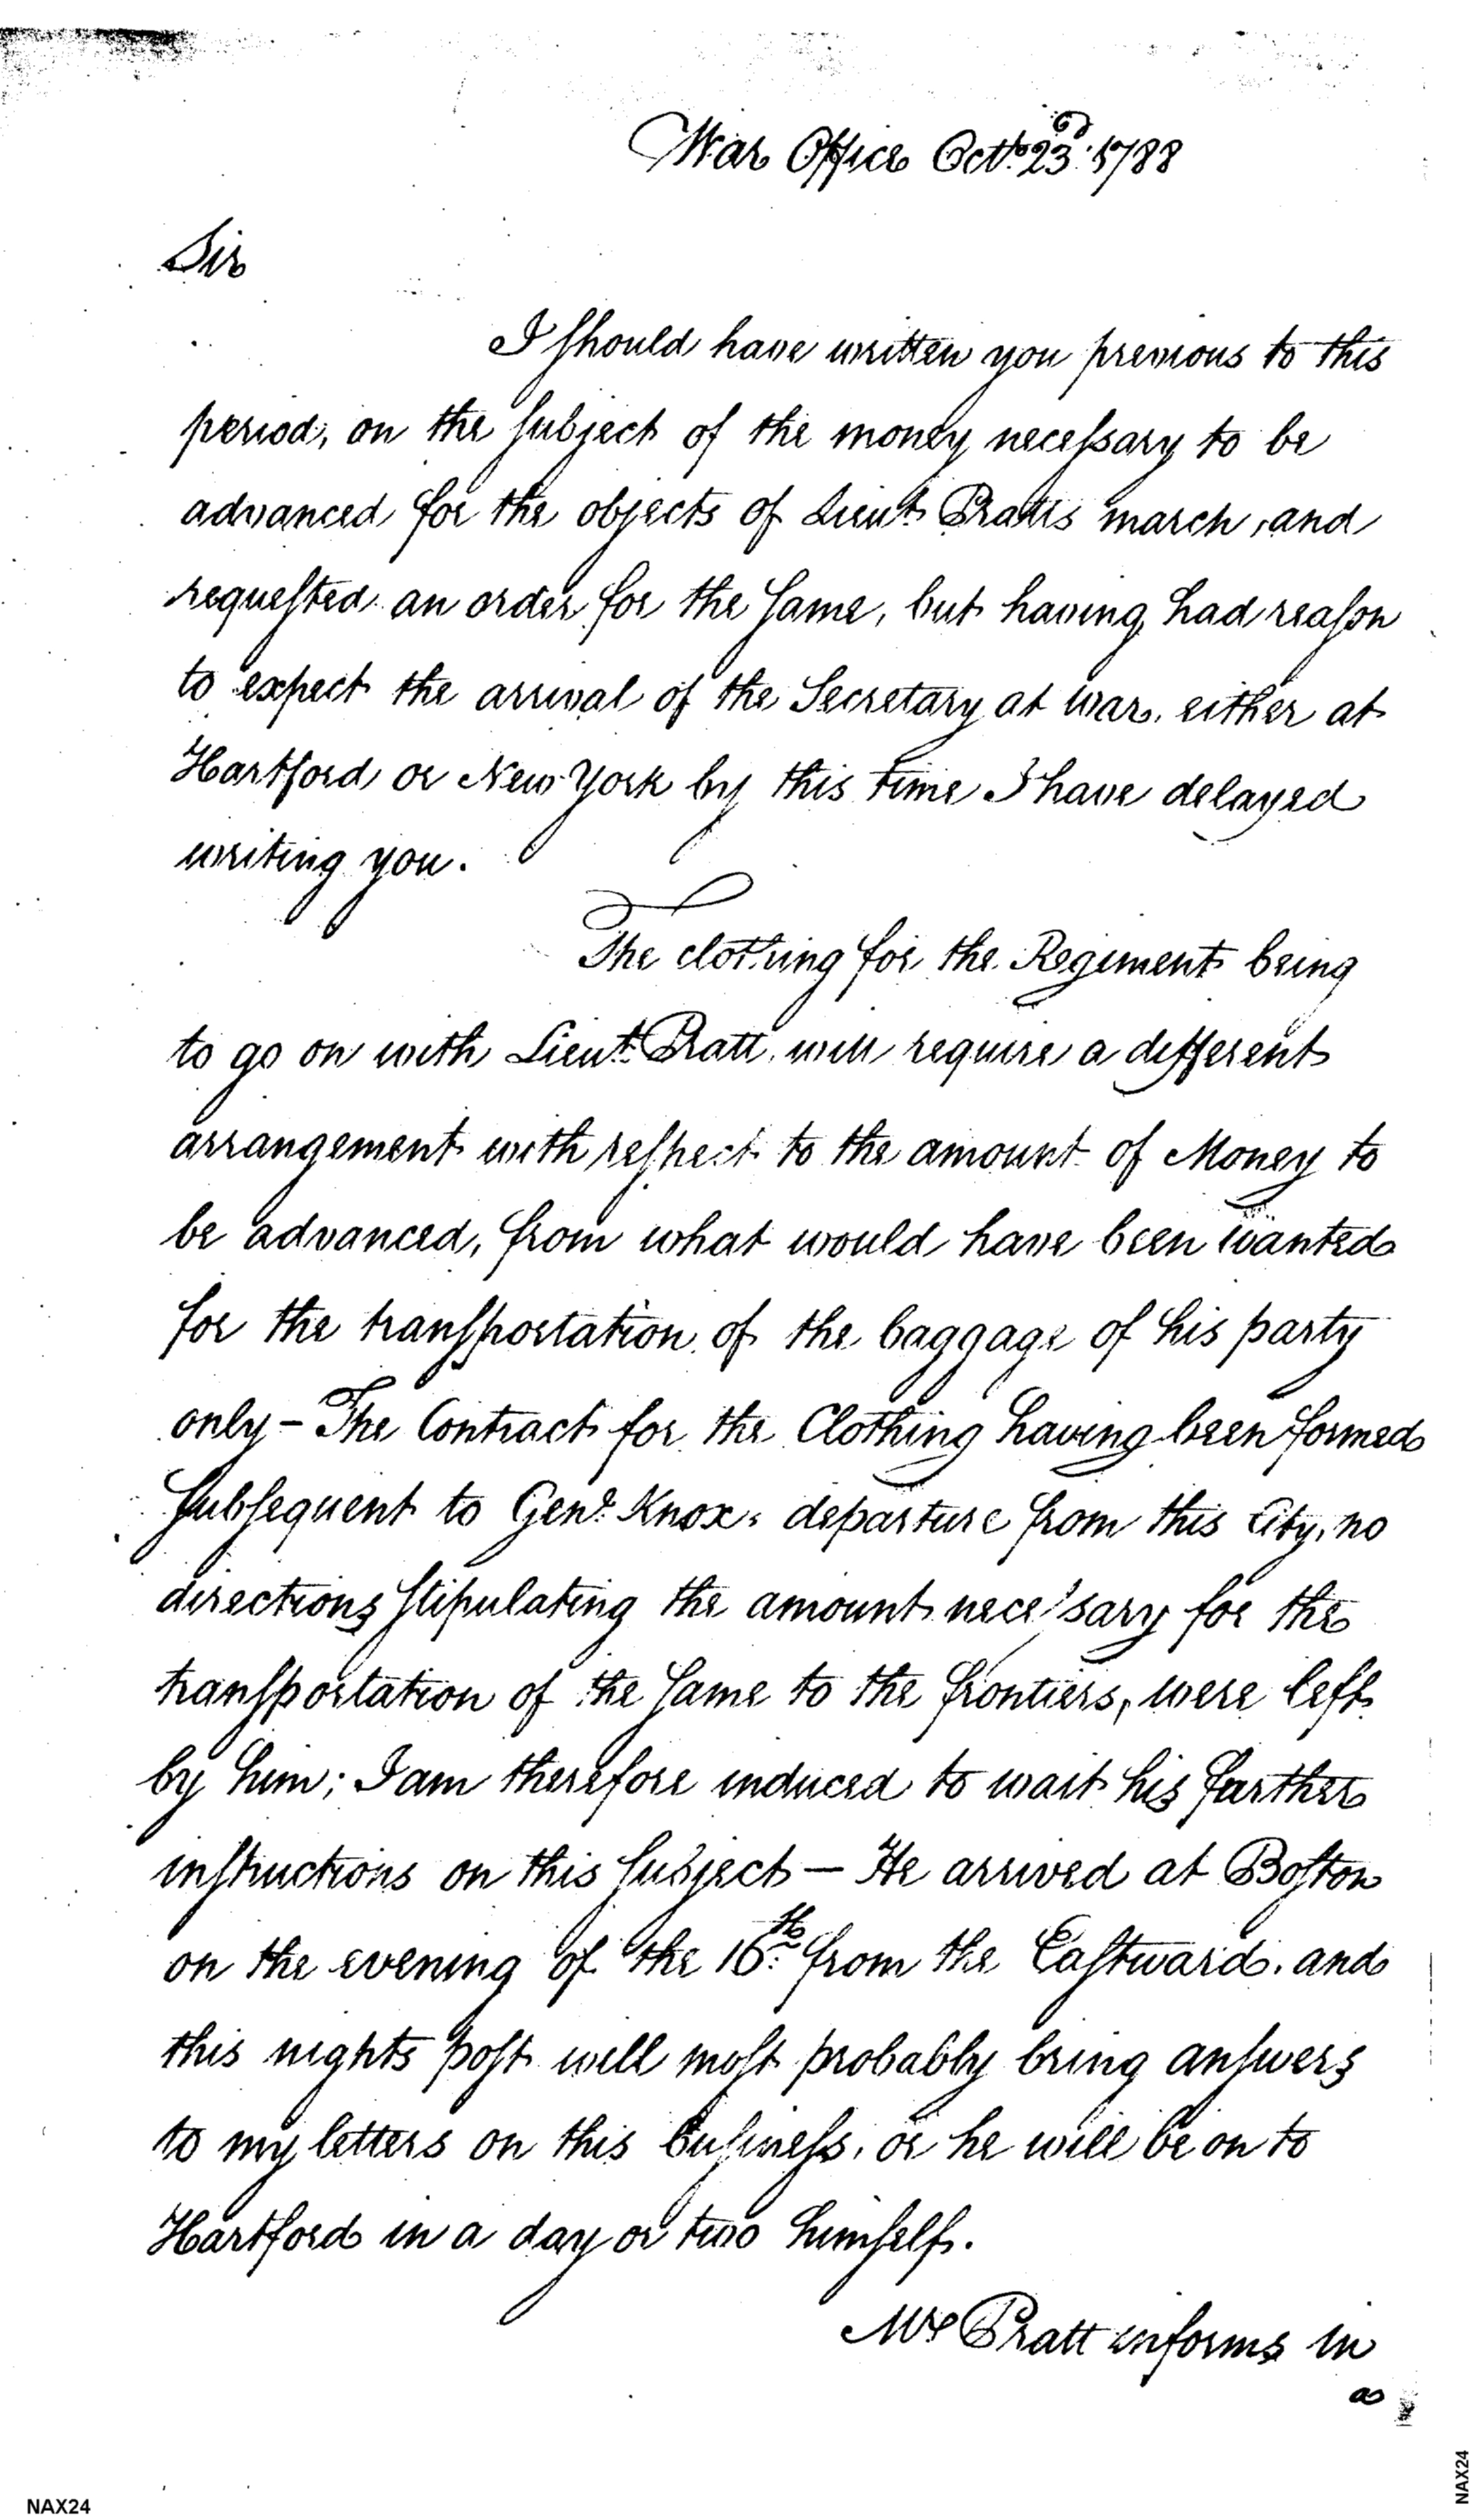 War Office Octr. 23d. 1788
Sir
I should have written you previous to this
period, on the subject of the money necessary to be
advanced for the objects of Lieut. Pratts march, and
requested an order for the same, but having had reason
to expect the arrival of the Secretary at war, either at
Hartford or New York by this time I have delayed
writing you.
The clothing for the Regiment being
to go on with Lieut. Pratt, will require a different
arrangement with respect to the amount of Money to
be advanced, from what would have been wanted
for the transportation of the baggage of his party
only - The Contract for the Clothing having been formed
subsequent to Genl. Knox's departure from this City, no
directions stipulating the amount necessary for the
transportation of the same to the frontiers, were left
by him; I am therefore induced to wait his farther
instructions on this subject — He arrived at Boston
on the evening of the 16th. from the Eastward, and
this nights post will most probably bring answers
to my letters on this business, or he will be on to
Hartford in a day or two himself.
Mr. Pratt informs in
as
NAX24
NAX24